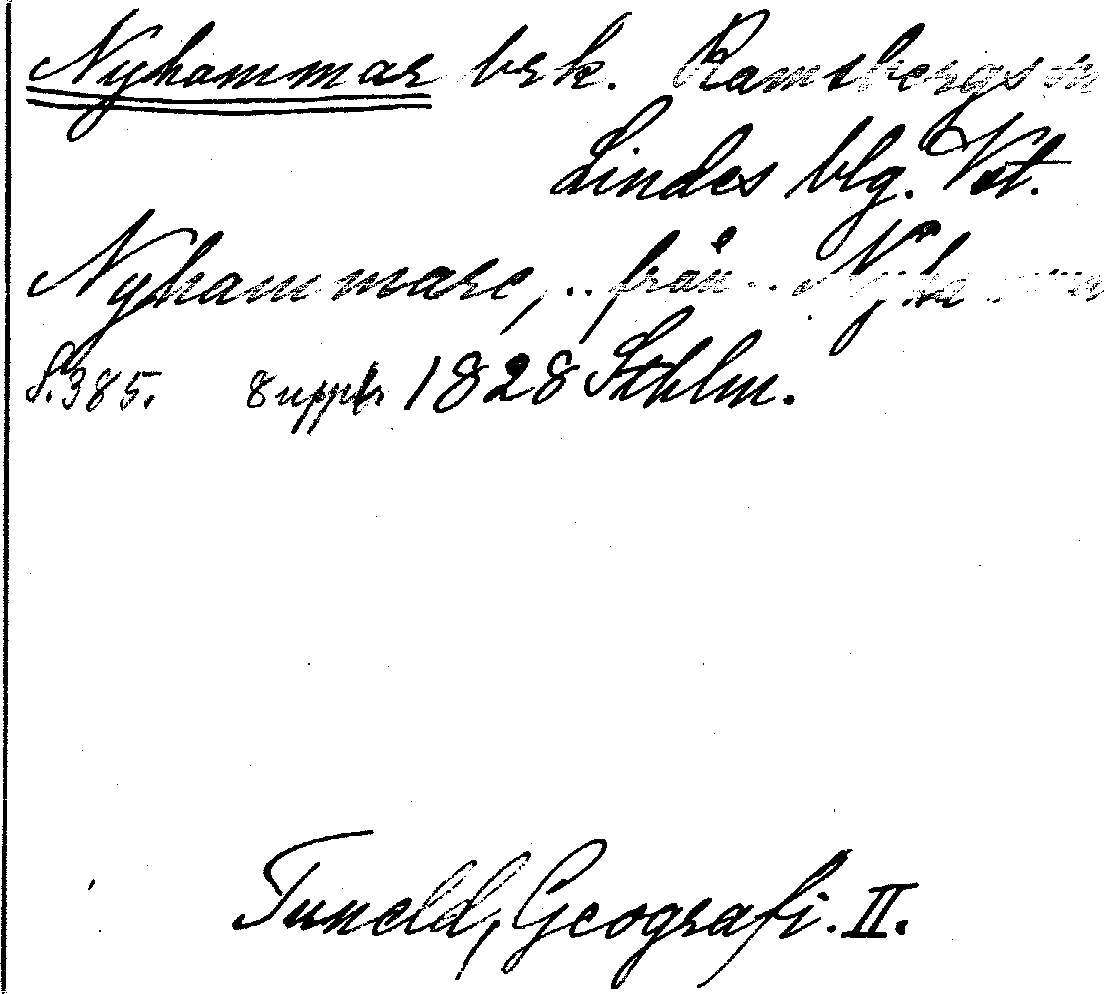 Nyhammar brk. Ramsbergs sn
Lindes blg. Vstl.
Nyhammare, .. från ..
S. 385. 8 uppl. 1828 Sthlm.
Tuneld, Geografi. II.